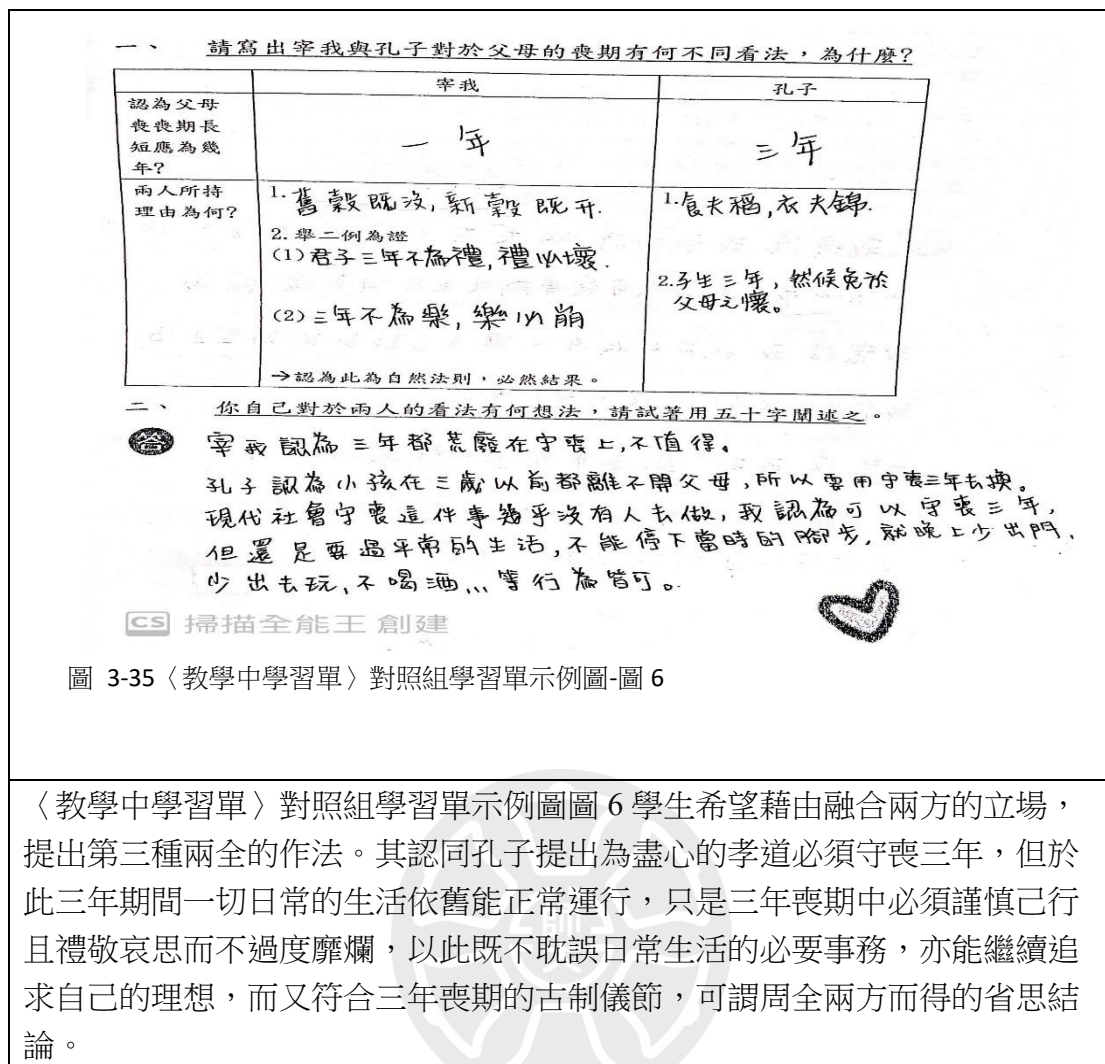 一、 請寫出宰我與孔子對於父母的喪期有何不同看法，為什麼?
宰我
孔子
認為父母
喪喪期長
短應為幾
年?
一年
三年
兩人所持
理由為何?
1.舊穀既沒,新穀既升.
2.舉二例為證
(1)君子三年不為禮,禮必壞.
(2)三年不為樂,樂必崩
→認為此為自然法則，必然結果。
1.食夫稻,衣夫錦.
2.子生三年，然候免於
父母之懷。
二、 你自己對於兩人的看法有何想法，請試著用五十字闡述之。
答 宰我認為三年都荒廢在守喪上,不值得。
孔子認為小孩在三歲以前都離不開父母,所以要用守喪三年去換。
現代社會守喪這件事幾乎沒有人去做,我認為可以守喪三年,
但還是要過平常的生活,不能停下當時的腳步,就晚上少出門,
少出去玩,不喝酒...等行為皆可。
CS 掃描全能王 創建
圖 3-35〈教學中學習單〉對照組學習單示例圖-圖 6
〈教學中學習單〉對照組學習單示例圖圖 6 學生希望藉由融合兩方的立場，
提出第三種兩全的作法。其認同孔子提出為盡心的孝道必須守喪三年，但於
此三年期間一切日常的生活依舊能正常運行，只是三年喪期中必須謹慎己行
且禮敬哀思而不過度靡爛，以此既不耽誤日常生活的必要事務，亦能繼續追
求自己的理想，而又符合三年喪期的古制儀節，可謂周全兩方而得的省思結
論。